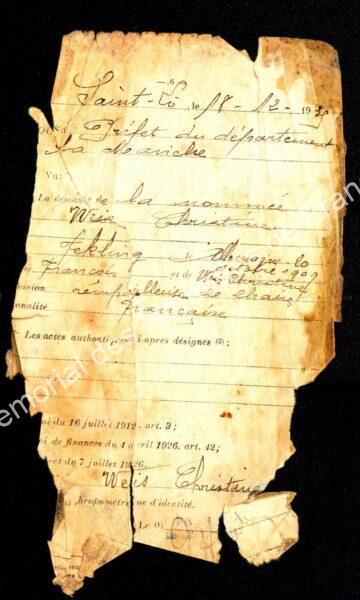 Saint-Lô, le 18-12-1939
Préfet du département
La Manche
Vu:
La demande de la nommée
Weis Christine
Jekling le Allemagne 20
octobre 1909
François et de Weis Christine
ession rempailleuse de chaises
onalité française
Les actes authentiques ci-après désignés (2):
oi du 16 juillet 1912, art. 3;
oi de finances du 4 avril 1926, art. 42;
ret du 7 juillet 1926,
Weis Christine
anthropométrique d'identité.
Le (1)